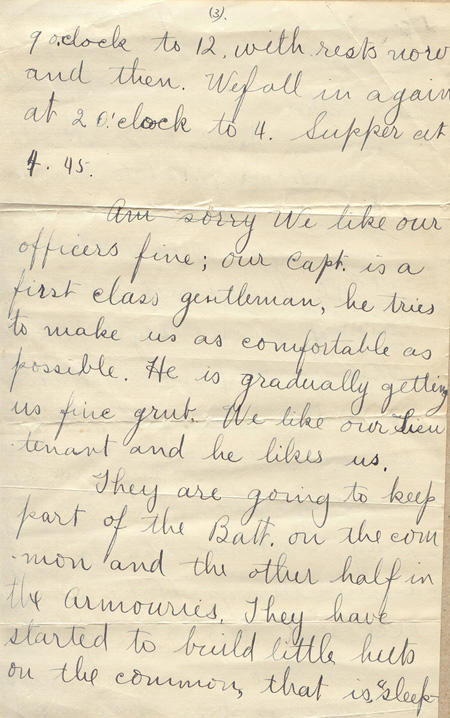 (3).
9 o.clock to 12. with rests now
and then. We fall in again
at 2 O'clock to 4. Supper at
4. 45.
Am sorry We like our
officers fine; our Capt. is a
first class gentleman, he tries
to make us as comfortable as
possible. He is gradually getting
us fine grub. We like our Lieu
tenant and he likes us.
They are going to keep
part of the Batt. on the com
-mon and the other half in
the Armouries. They have
started to build little huts
on the common, that is, "sleep-